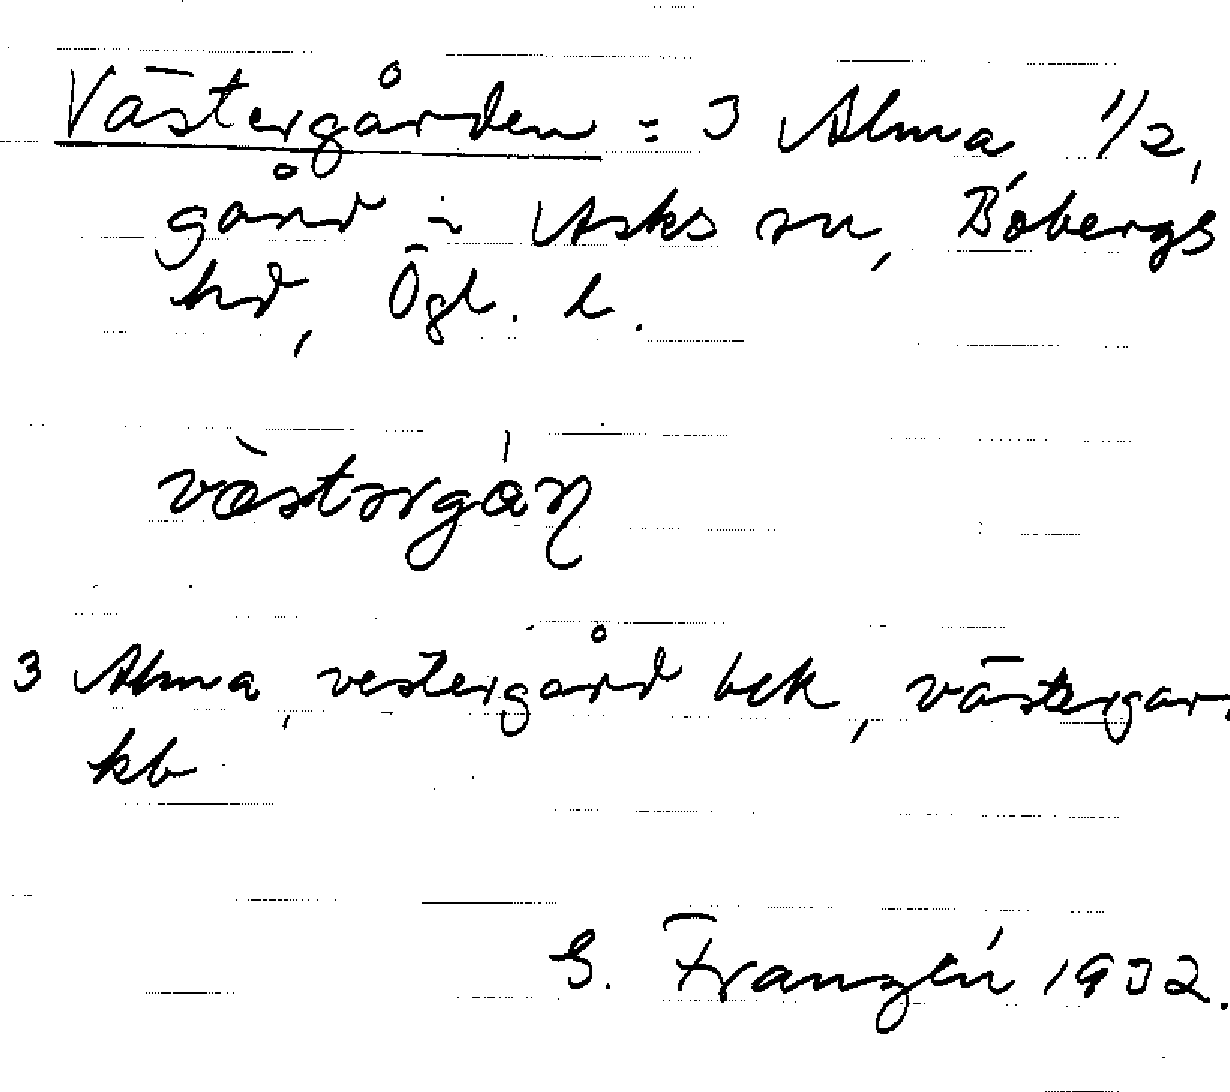 Västergården = 3 Alma 1/2,
gård i Asks sn, Bobergs
hd, Ögl. l.
västərgán
3 Alma, vestergård bek, västergar
kb
G. Franzén 1932.